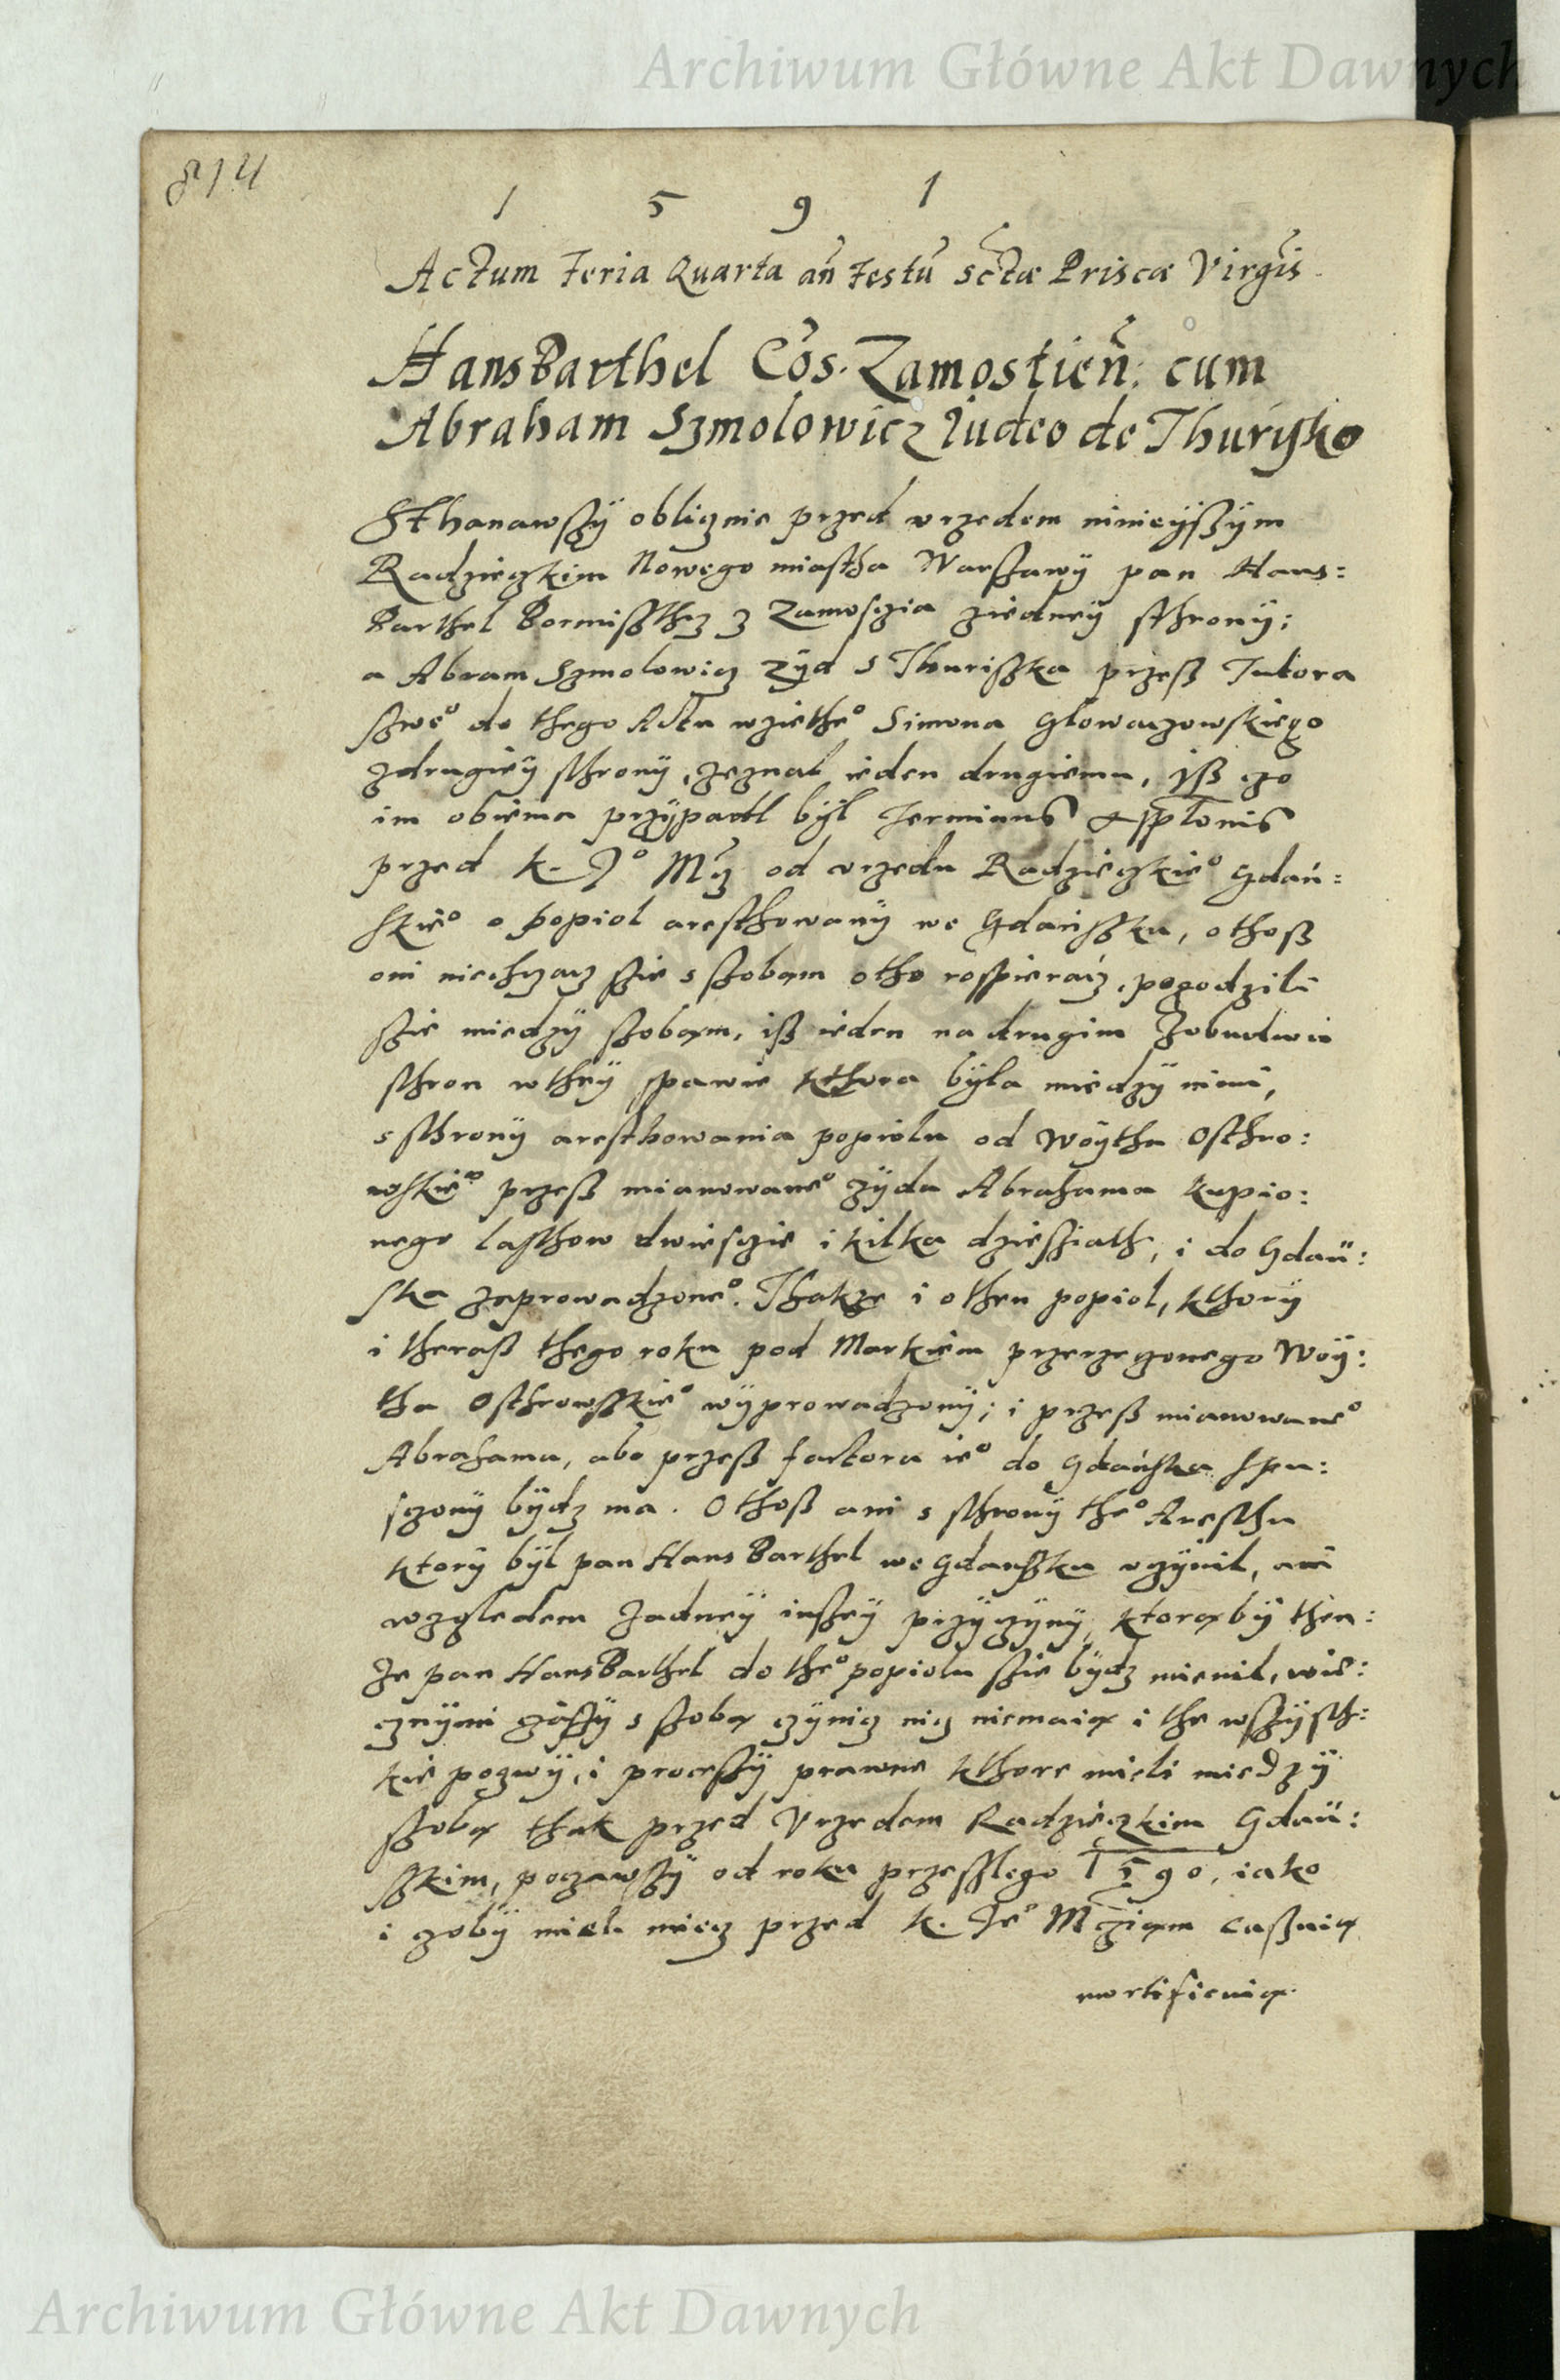 Archiwum Główne Akt Dawnych
814
1 5 9 1
Actum Feria Quarta an̄ Festū Sctæ Priscæ Virgīs
Hans Barthel Cōs. Zamostien̄: cum
Abraham Szmolowicz Iudeo de Thuryſko
Sthanawſzÿ oblicznie przed vrzedem ninieÿſzÿm
Radzieczkim Nowego miaſtha Warſzawÿ pan Hans=
Barthel Bormiſthz z Zamoſczia ziedneÿ ſthronÿ;
a Abram Szmolowicz Zÿd s Thuriſzka przeß Tutora
ſzwe° do thego Actu wziethe° Simona Glowaczowſkiego
zdrugieÿ ſthronÿ, zeznal ieden drugiemu, iß czo
im obiema przÿpadl bÿl Terminus
przed K. J° Mcz od vrzedu Radzieczkie° Gdań=
ſkie° o popiol areſthowanÿ we Gdańſzku, othoß
oni niechczacz ſzie s ſzobam otho roſpieracz, pogodzili
ſzie miedzÿ ſzobam, iß ieden na drugim zobudwu
ſthron wtheÿ ſpawie kthora bÿla miedzÿ nimi,
s ſthronÿ areſthowania popiolu od Woÿtha Oſthro:
wſkie° przeß mianowane° zÿda Abrahama kupio:
nego laſthow dwieſczie i kilka dzieſziath, i do Gdań:
ſka zaprowadzone°. Thakze i othen popiol, kthorÿ
i theraß thego roku pod Markiem przerzeczonego Woÿ:
tha Oſthrowſkie° wÿprowadzonÿ; i przeß mianowane°
Abrahama, abo przeß factora ie° do Gdańſka ſpu:
ſczonÿ bÿdz ma. Othoß ani s ſthronÿ the° Areſthu
ktorÿ bÿl pan Hans Barthel we Gdańſzku vczÿnil, ani
wzgledem zadneÿ inſzeÿ przÿczÿnÿ, ktorabÿ then:
ze pan Hans Barthel do the° popiolu ſzie bÿdz mienil, wie:
cznÿmi czaſzÿ s ſzoba czÿnicz nicz niemaia i the wſzÿſth:
kie pozwÿ, i proceſſÿ prawne kthore mieli miedzÿ
ſzoba thak przed Vrzedem Radzieczkim Gdań:
ſzkim, poczawſzÿ od roku przeſzlego 1590, iako
i czobÿ mieli miecz przed K. Je° Mcziam caſzuia
mortificuia.
Archiwum Główne Akt Dawnych